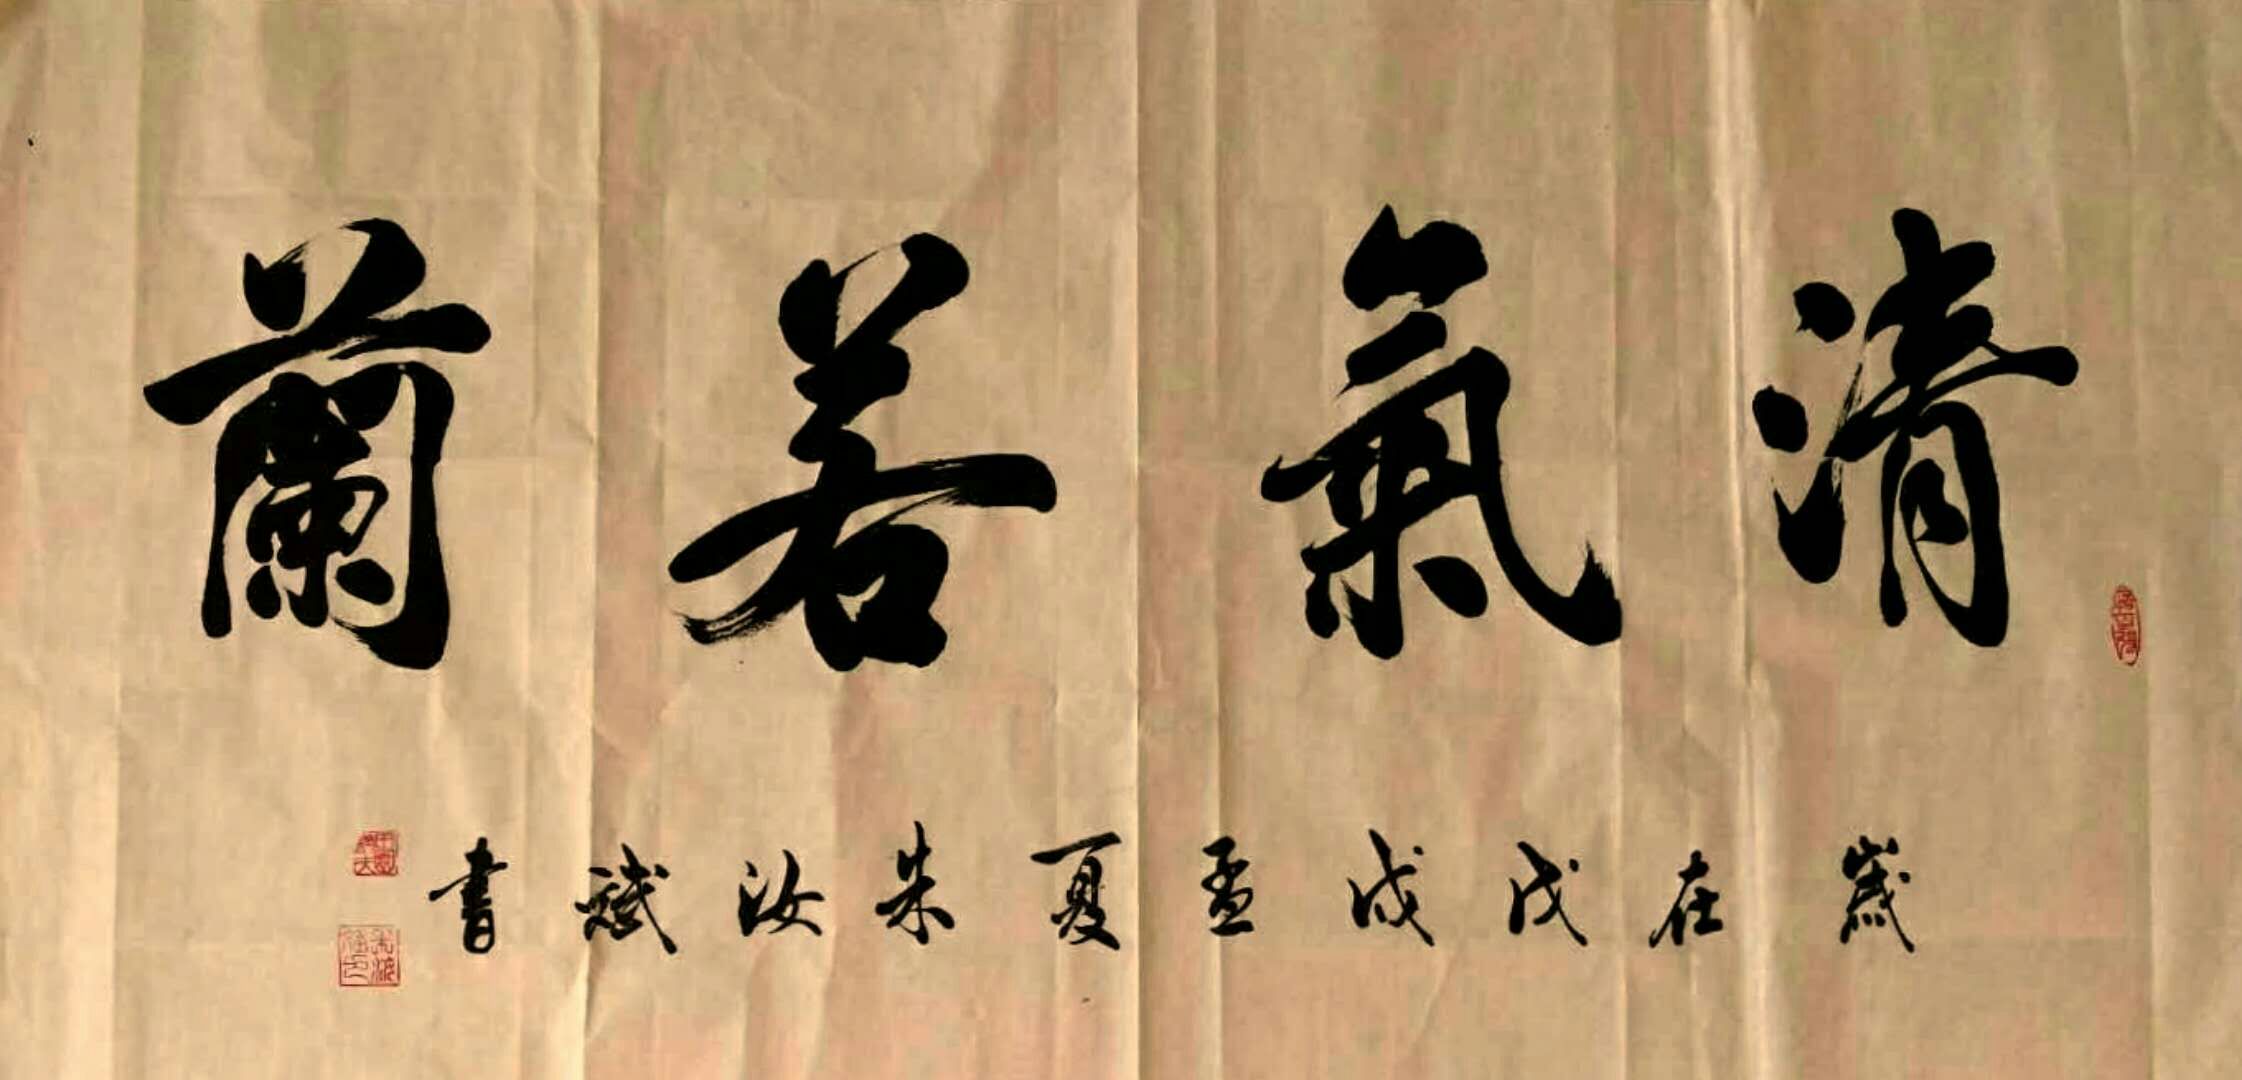 清氣若蘭
歲在戊戌孟夏朱汝斌書